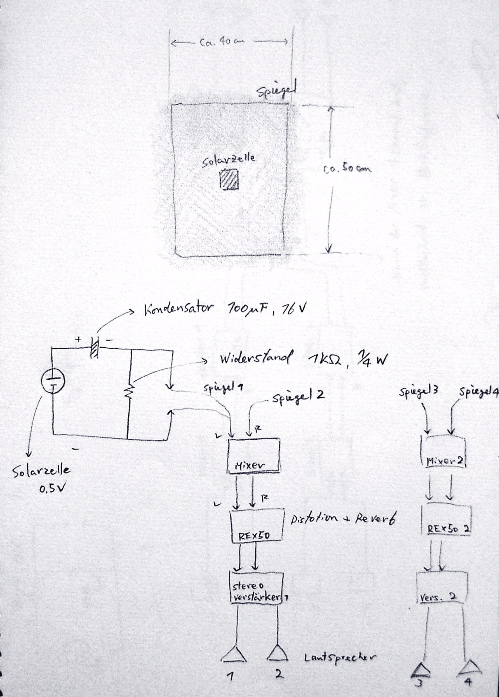 ca. 40cm
Spiegel
Solarzelle
ca. 50cm
Kondensator 100µF, 16V
+ -
Widerstand 1kΩ, 1/4 W
Spiegel 1
Spiegel 2
Spiegel 3
Spiegel 4
-
Solarzelle
0,5V
L R
Mixer
Mixer 2
L R
REX50
Distotion + Reverb
REX50 2
stereo
verstärker 1
Vers. 2
Lautsprecher
1 2
3 4